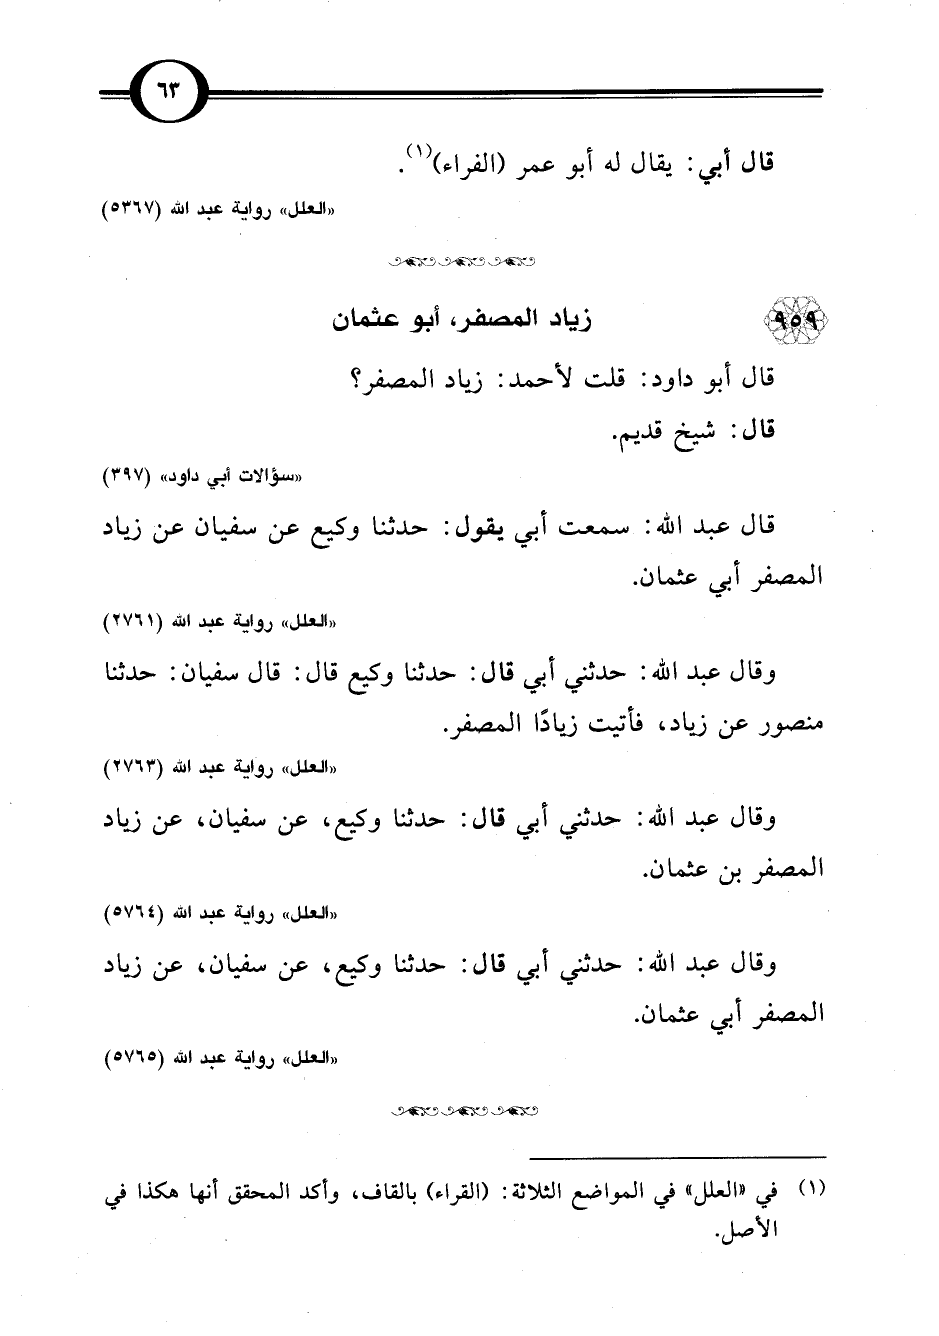 ٦٣
قال أبي: يقال له أبو عمر (الفراء)(١).
«العلل» رواية عبد الله (٥٣٦٧)
٩٥٩ زياد المصفر، أبو عثمان
قال أبو داود: قلت لأحمد: زياد المصفر؟
قال: شيخ قديم.
«سؤالات أبي داود» (٣٩٧)
قال عبد الله: سمعت أبي يقول: حدثنا وكيع عن سفيان عن زياد
المصفر أبي عثمان.
«العلل» رواية عبد الله (٢٧٦١)
وقال عبد الله: حدثني أبي قال: حدثنا وكيع قال: قال سفيان: حدثنا
منصور عن زياد، فأتيت زيادًا المصفر.
«العلل» رواية عبد الله (٢٧٦٣)
وقال عبد الله: حدثني أبي قال: حدثنا وكيع، عن سفيان، عن زياد
المصفر بن عثمان.
«العلل» رواية عبد الله (٥٧٦٤)
وقال عبد الله: حدثني أبي قال: حدثنا وكيع، عن سفيان، عن زياد
المصفر أبي عثمان.
«العلل» رواية عبد الله (٥٧٦٥)
(١) في «العلل» في المواضع الثلاثة: (القراء) بالقاف، وأكد المحقق أنها هكذا في
الأصل.